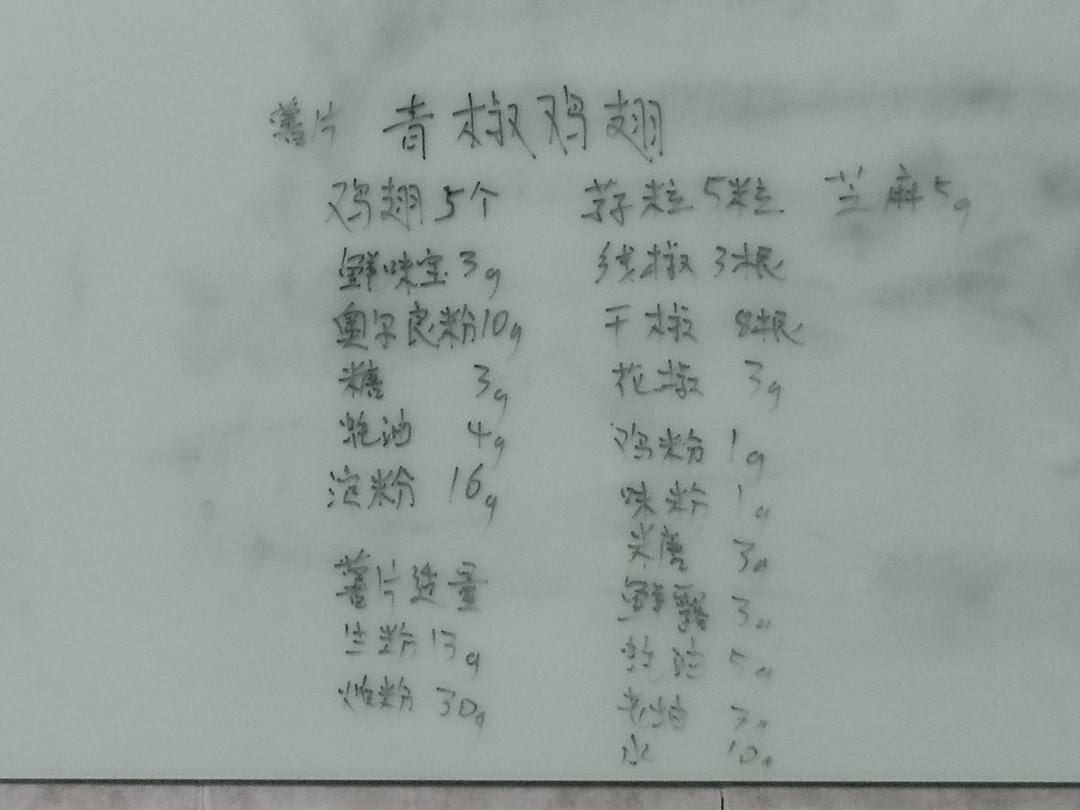 薯片 青椒鸡翅
鸡翅5个
鲜味宝3g
奥尔良粉10g
糖 3g
蚝油 4g
淀粉 16g
薯片适量
生粉13g
炸粉30g
蒜粒5粒 芝麻5g
线椒3根
干椒 8根
花椒 3g
鸡粉 1g
味粉 1g
糖 3g
鲜露 3g
蚝油 5g
老油 3g
水 10g